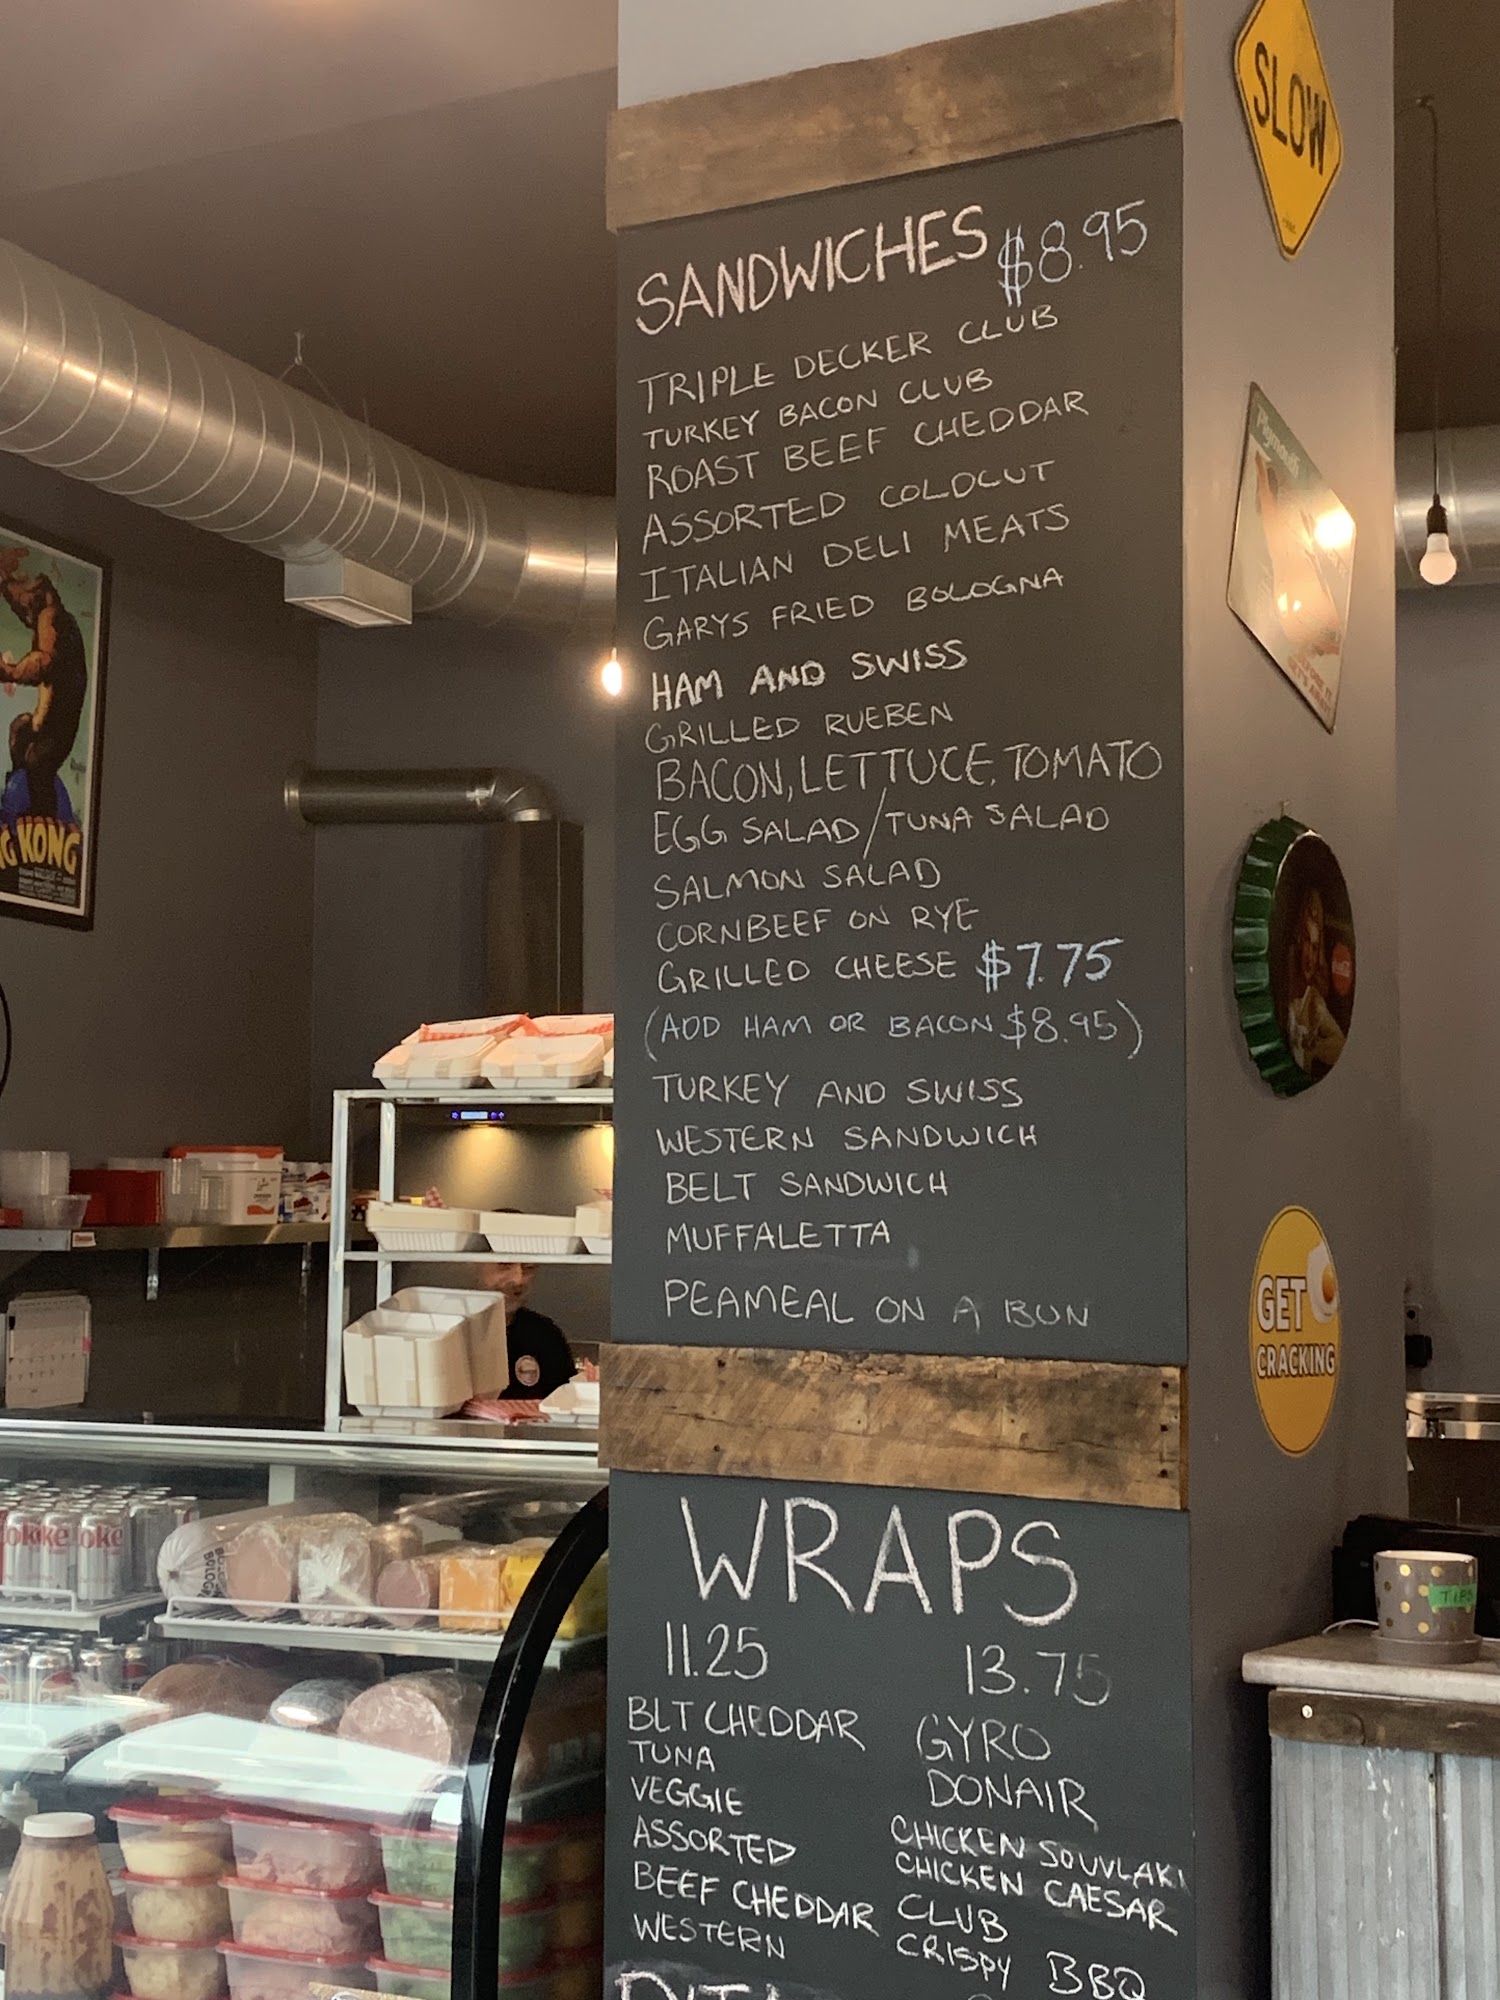 SLOW
SANDWICHES $8.95
TRIPLE DECKER CLUB
TURKEY BACON CLUB
ROAST BEEF CHEDDAR
ASSORTED COLDCUT
ITALIAN DELI MEATS
GARYS FRIED BOLOGNA
HAM AND SWISS
GRILLED RUEBEN
BACON, LETTUCE, TOMATO
EGG SALAD/TUNA SALAD
SALMON SALAD
CORNBEEF ON RYE
GRILLED CHEESE $7.75
(ADD HAM OR BACON $8.95)
TURKEY AND SWISS
WESTERN SANDWICH
BELT SANDWICH
MUFFALETTA
PEAMEAL ON A BUN
WRAPS
11.25
BLT CHEDDAR
TUNA
VEGGIE
ASSORTED
BEEF CHEDDAR
WESTERN
13.75
GYRO
DONAIR
CHICKEN SOUVLAKI
CHICKEN CAESAR
CLUB
CRISPY BBQ
Plymouth
GET
CRACKING
TIPS
G KONG
oke
oke
BOLOG